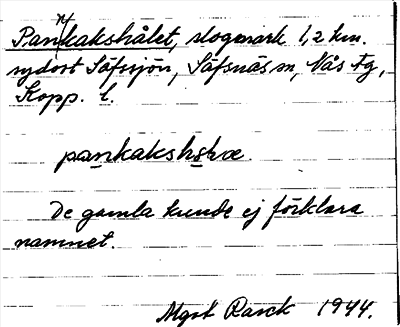 Pannkakshålet, slogmark 1,2 km.
sydost Säfssjön, Säfsnäs sn, Näs Fg,
Kopp. l.
pankaksholve.
De gamla kunde ej förklara
namnet.
Mgrt Rarck 1944.